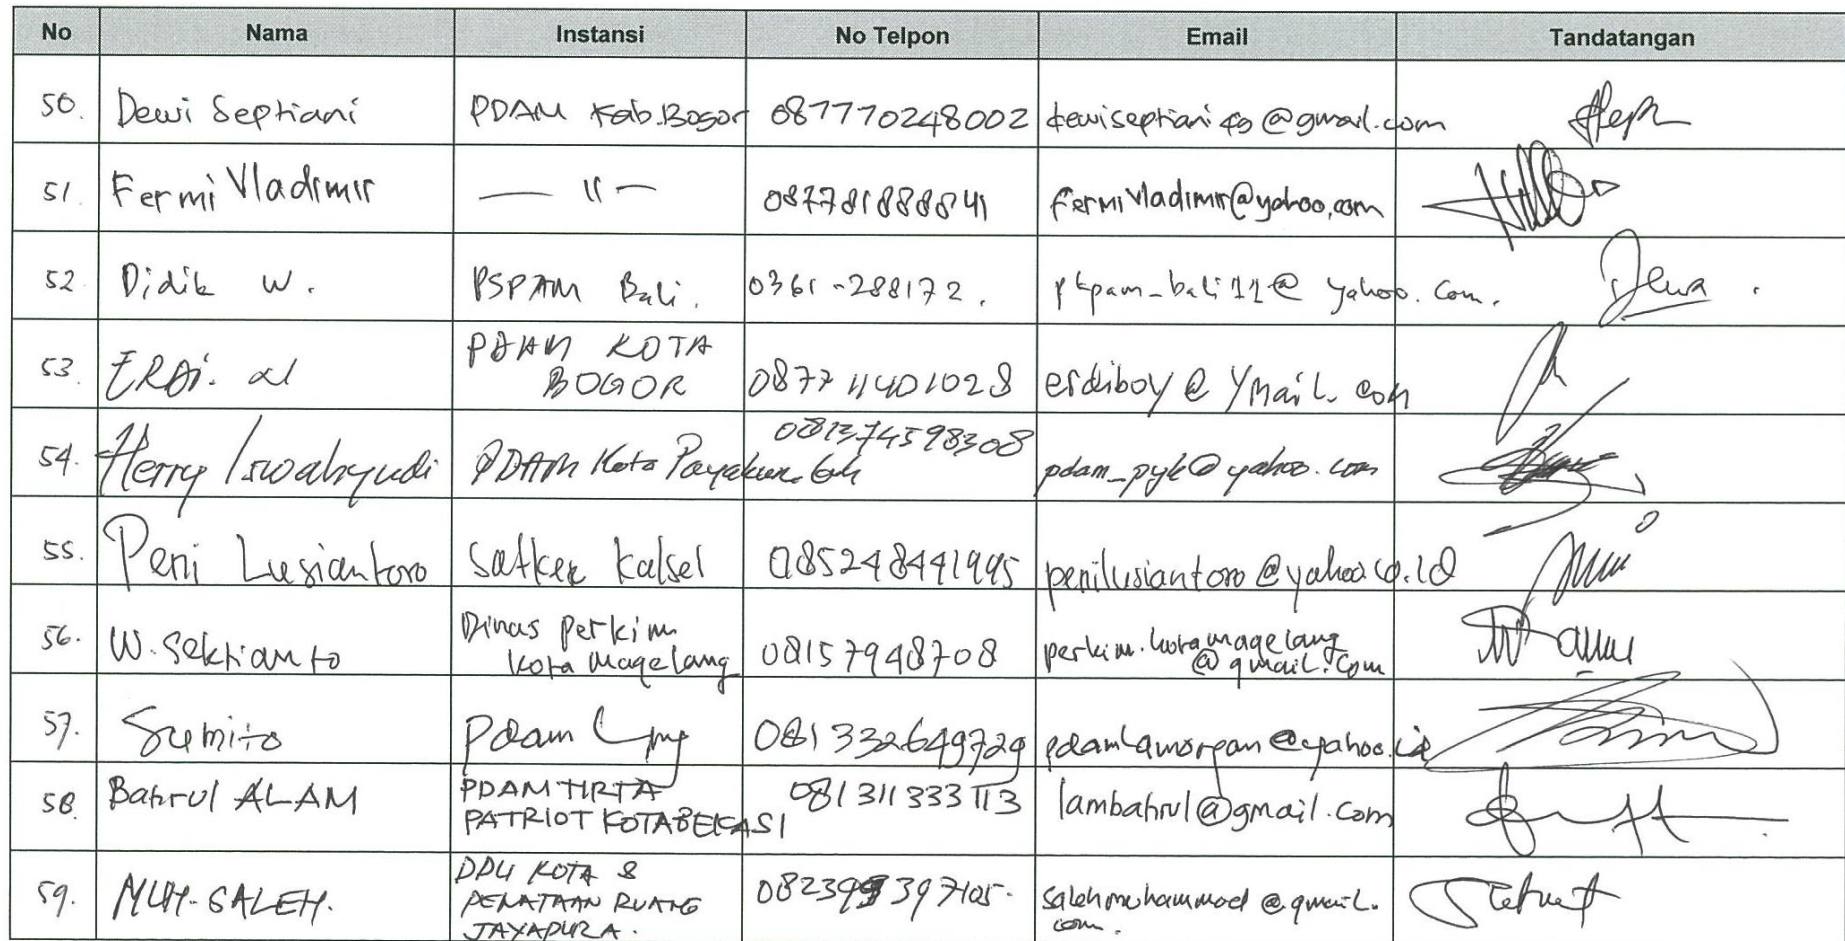 No Nama Instansi No Telpon Email Tandatangan
50. Dewi Septiani PDAM Kab.Bogor 087770248002 dewiseptiani49@gmail.com
51. Fermi Vladimir — 11 — 087781888841 fermivladimir@yahoo.com
52. Didik W. PSPAM Bali. 0361-288172. pkpam_bali11@yahoo.com.
53. ERDI. al PDAM KOTA
BOGOR 087711401028 erdiboy@ymail.com
54. Herry Iswahyudi PDAM Kota Payakumbuh 081374598308 pdam_pyk@yahoo.com
55. Peni Lusiantoro Satker Kalsel 085248441995 penilusiantoro@yahoo.co.id
56. W. Sektianto Dinas perkim
Kota Magelang 08157948708 perkim.kotamagelang
@gmail.com
57. Sumito Pdam 081332649729
58. Bahrul ALAM PDAM TIRTA
PATRIOT KOTA BEKASI 081311333113 lambahrul@gmail.com
59. MUH. SALEH. DPU KOTA &
PENATAAN RUANG
JAYAPURA. salehmuhammad@gmail.
com.